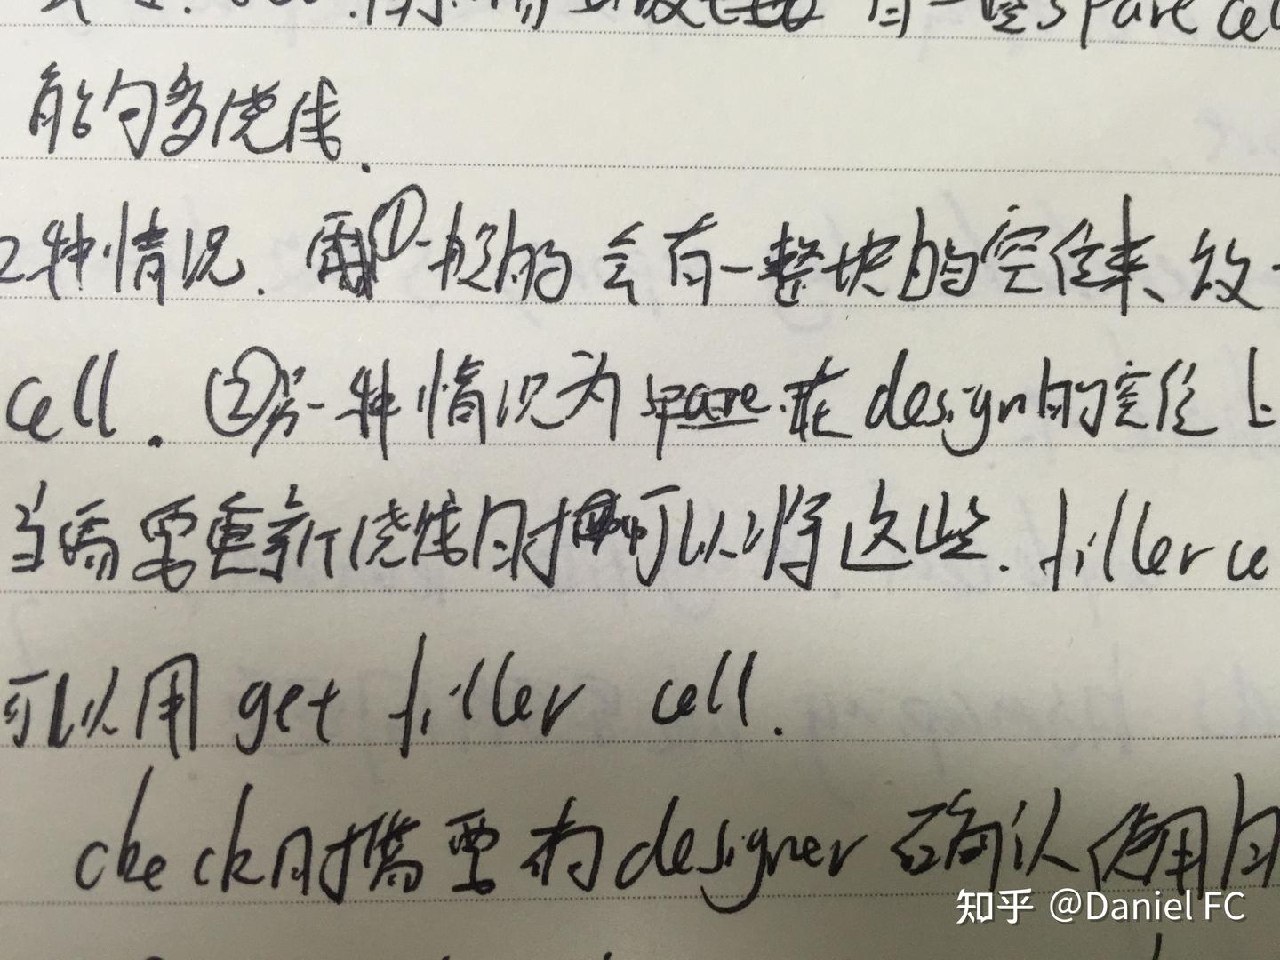 一些spare cell
能够多绕线.
2种情况. ①一般的会有一整块的空位来放一
cell. ②另一种情况为spare在design的空位上
当需要重新绕线时可以将这些. filler ce
可以用 get filler cell.
check时需要有designer确认使用的
知乎 @Daniel FC